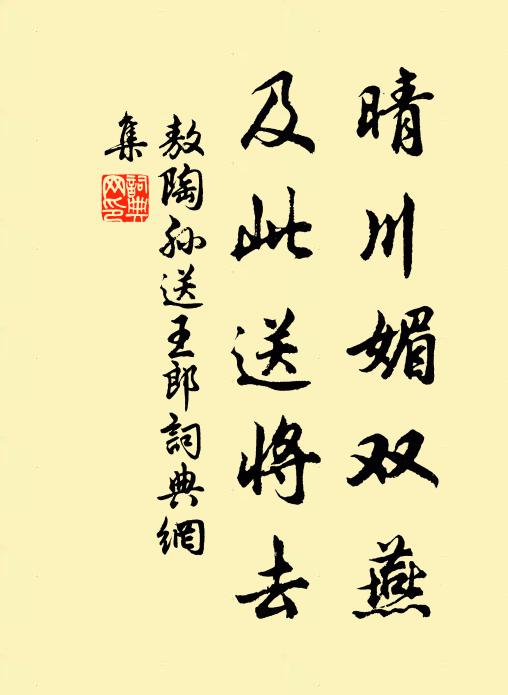 晴川媚双燕
及此送将去
敖陶孙送王郎詞典網
集
詞典
网印